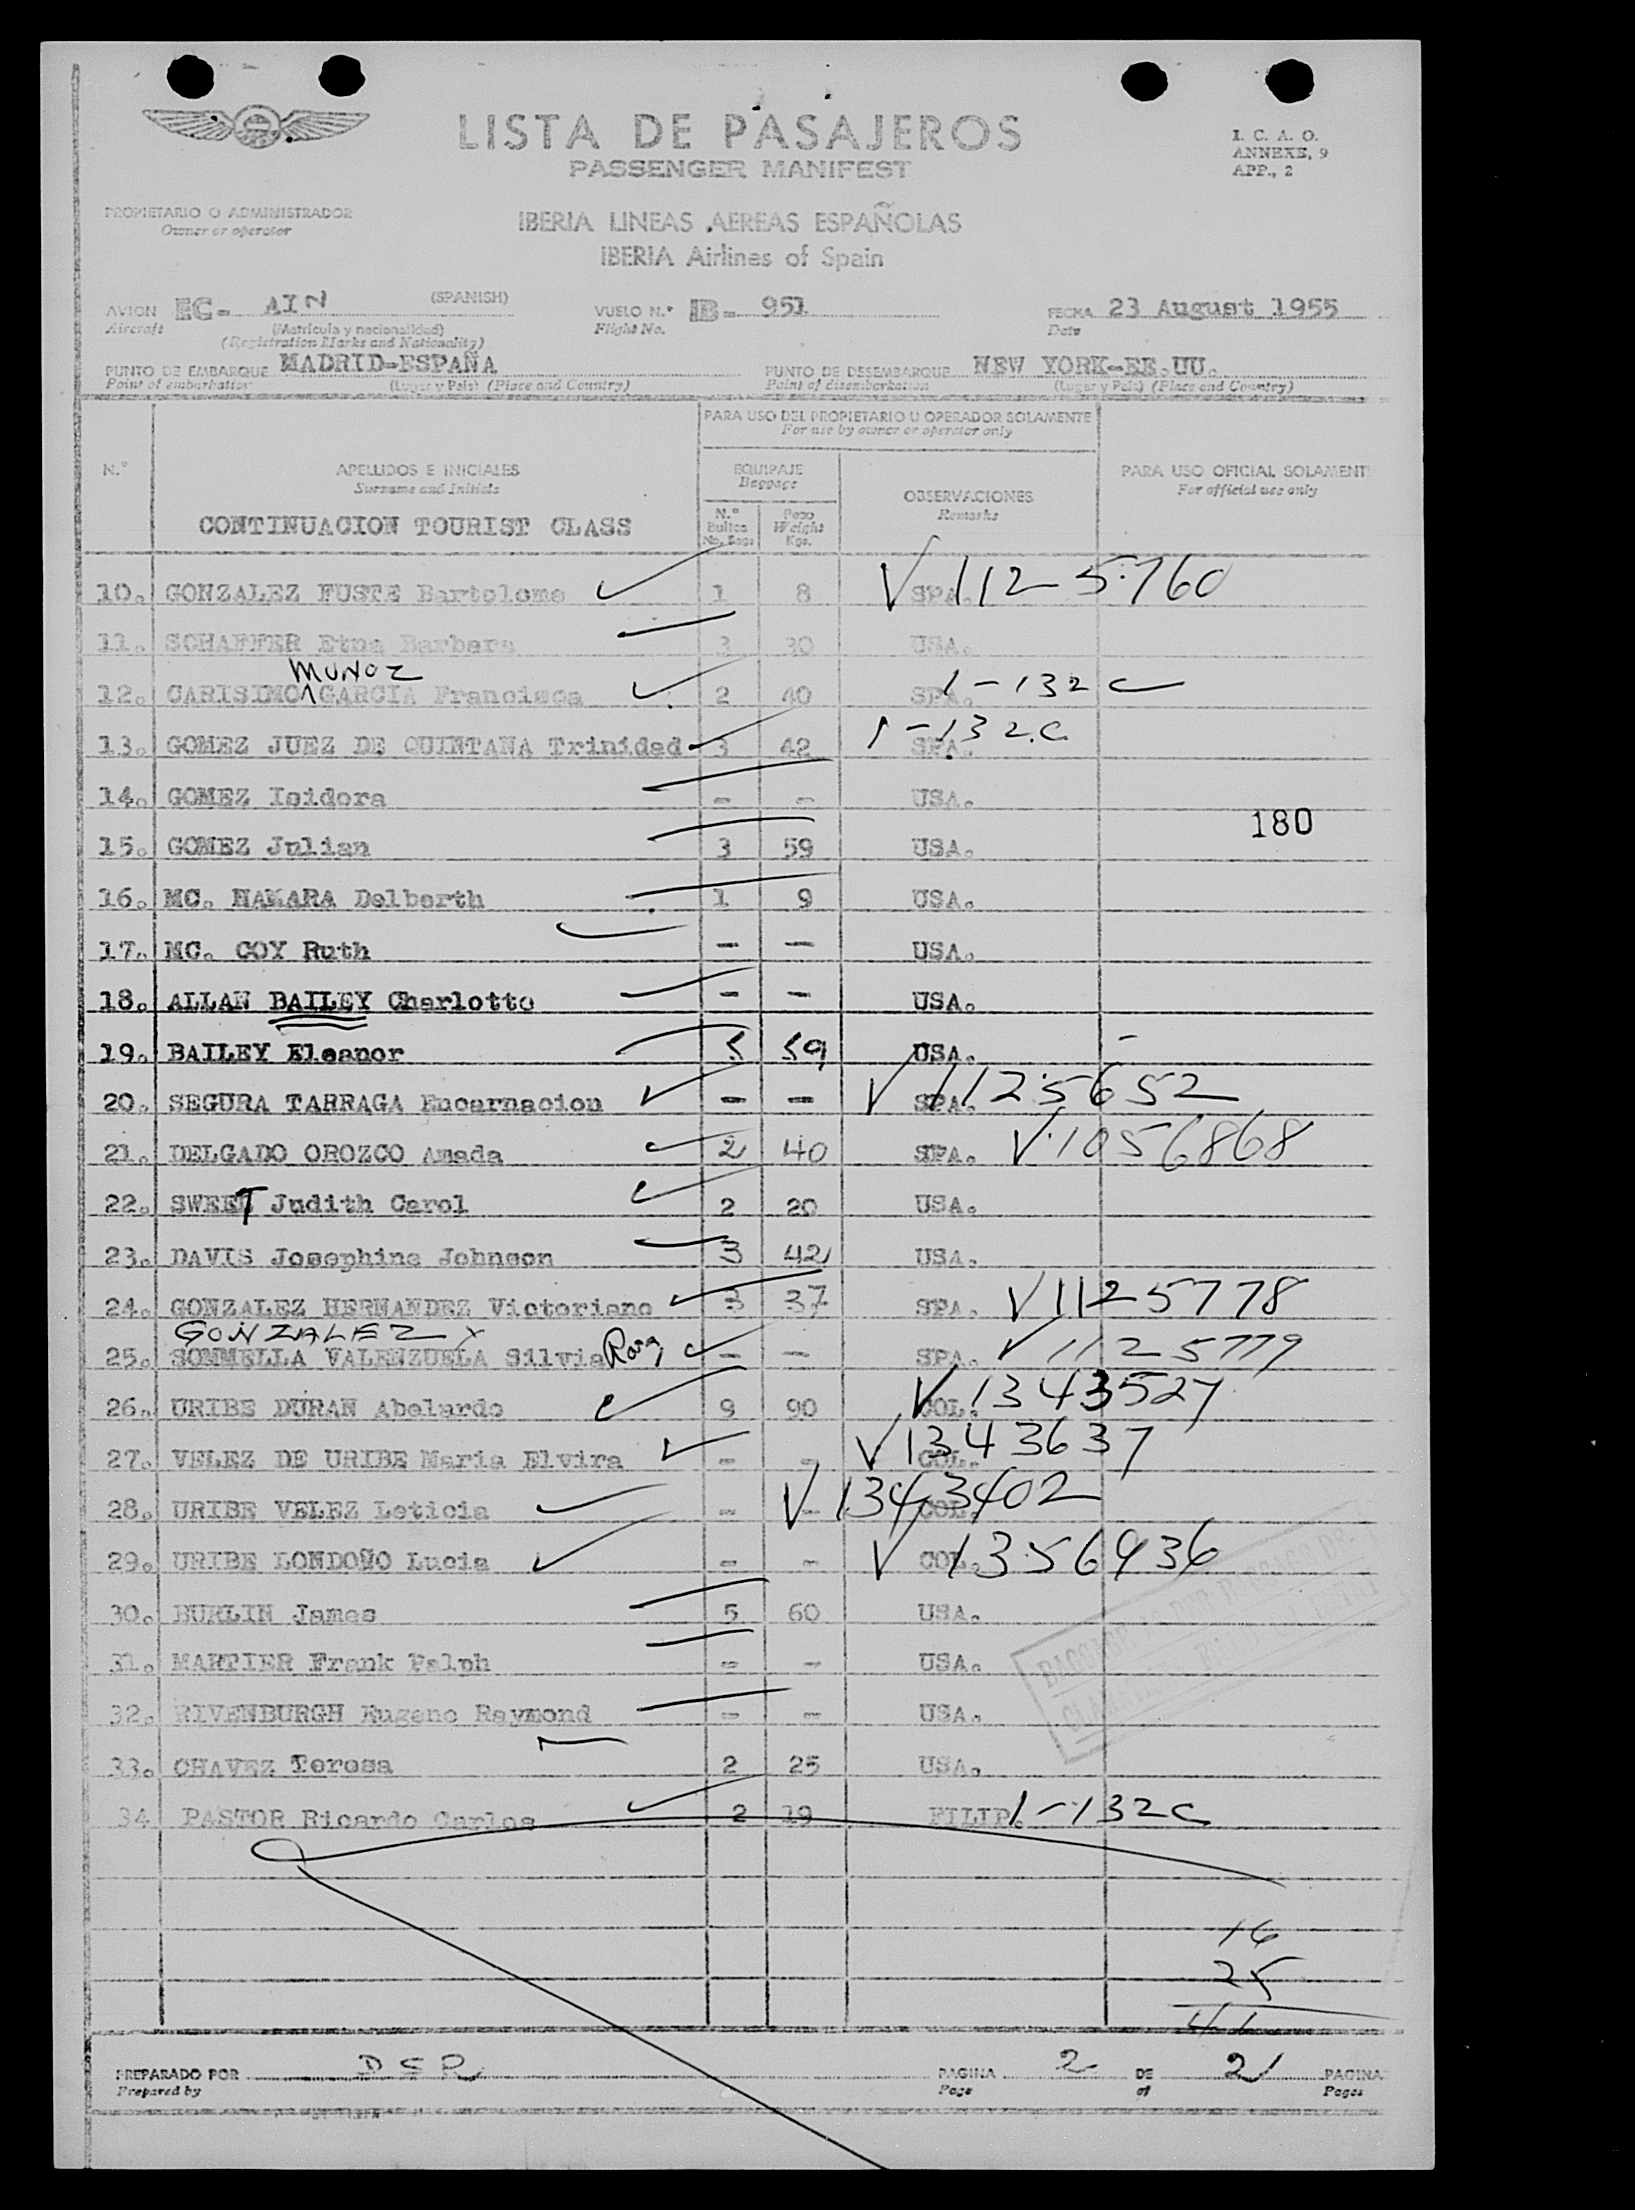 LISTA DE PASAJEROS
PASSENGER MANIFEST
I. C. A. O.
ANNEXE, 9
APP., 2
PROPIETARIO O ADMINISTRADOR
Owner or operator
IBERIA LINEAS AEREAS ESPAÑOLAS
IBERIA Airlines of Spain
AVION EC- AIN (SPANISH) VUELO N.° IB- 951 FECHA 23 August 1955
Aircraft (Matrícula y nacionalidad) Flight No. Date
(Registration Marks and Nationality)
PUNTO DE EMBARQUE MADRID-ESPAÑA PUNTO DE DESEMBARQUE NEW YORK-EE.UU.
Point of embarkation (Lugar y País) (Place and Country) Point of disembarkation (Lugar y País) (Place and Country)
PARA USO DEL PROPIETARIO U OPERADOR SOLAMENTE
For use by owner or operator only
N.° APELLIDOS E INICIALES EQUIPAJE PARA USO OFICIAL SOLAMENT
Surname and Initials Baggage For official use only
OBSERVACIONES
Remarks
CONTINUACION TOURIST CLASS N.° Bultos No. Bags Peso Weight Kgs.
10. GONZALEZ FUSTE Bartolome 1 8 SPA. 1125760
11. SCHAFFER Etna Barbara 3 30 USA.
MUNOZ
12. CARISIMO GARCIA Francisca 2 40 SPA. 1-132 C
13. GOMEZ JUEZ DE QUINTANA Trinidad 3 42 SPA. 1-132.C
14. GOMEZ Isidora - - USA.
180
15. GOMEZ Julian 3 59 USA.
16. MC. NAMARA Delberth 1 9 USA.
17. MC. COY Ruth - - USA.
18. ALLAN BAILEY Charlotte - - USA.
19. BAILEY Eleanor 5 59 USA. -
20. SEGURA TARRAGA Encarnacion - - SPA. 1125652
21. DELGADO OROZCO Amada 2 40 SPA. 1056868
22. SWEET Judith Carol 2 20 USA.
23. DAVIS Josephine Johnson 3 42 USA.
24. GONZALEZ HERNANDEZ Victoriano 3 37 SPA. 1125778
GONZALEZ x
25. SOMMELLA VALENZUELA Silvia Rosa - - SPA. 1125779
26. URIBE DURAN Abelardo 9 90 COL. 1343527
27. VELEZ DE URIBE Maria Elvira - - COL. 1343637
28. URIBE VELEZ Leticia - - COL. 1343402
29. URIBE LONDOÑO Lucia - - COL. 1356936
30. BURLIN James 5 60 USA.
31. MARTIER Frank Ralph - - USA.
32. RIVENBURGH Eugene Raymond - - USA.
33. CHAVEZ Teresa 2 25 USA.
34 PASTOR Ricardo Carlos 2 19 FILIP. 1-132C
16
25
41
PREPARADO POR DSR PAGINA 2 DE 2 PAGINA
Prepared by Page of Pages